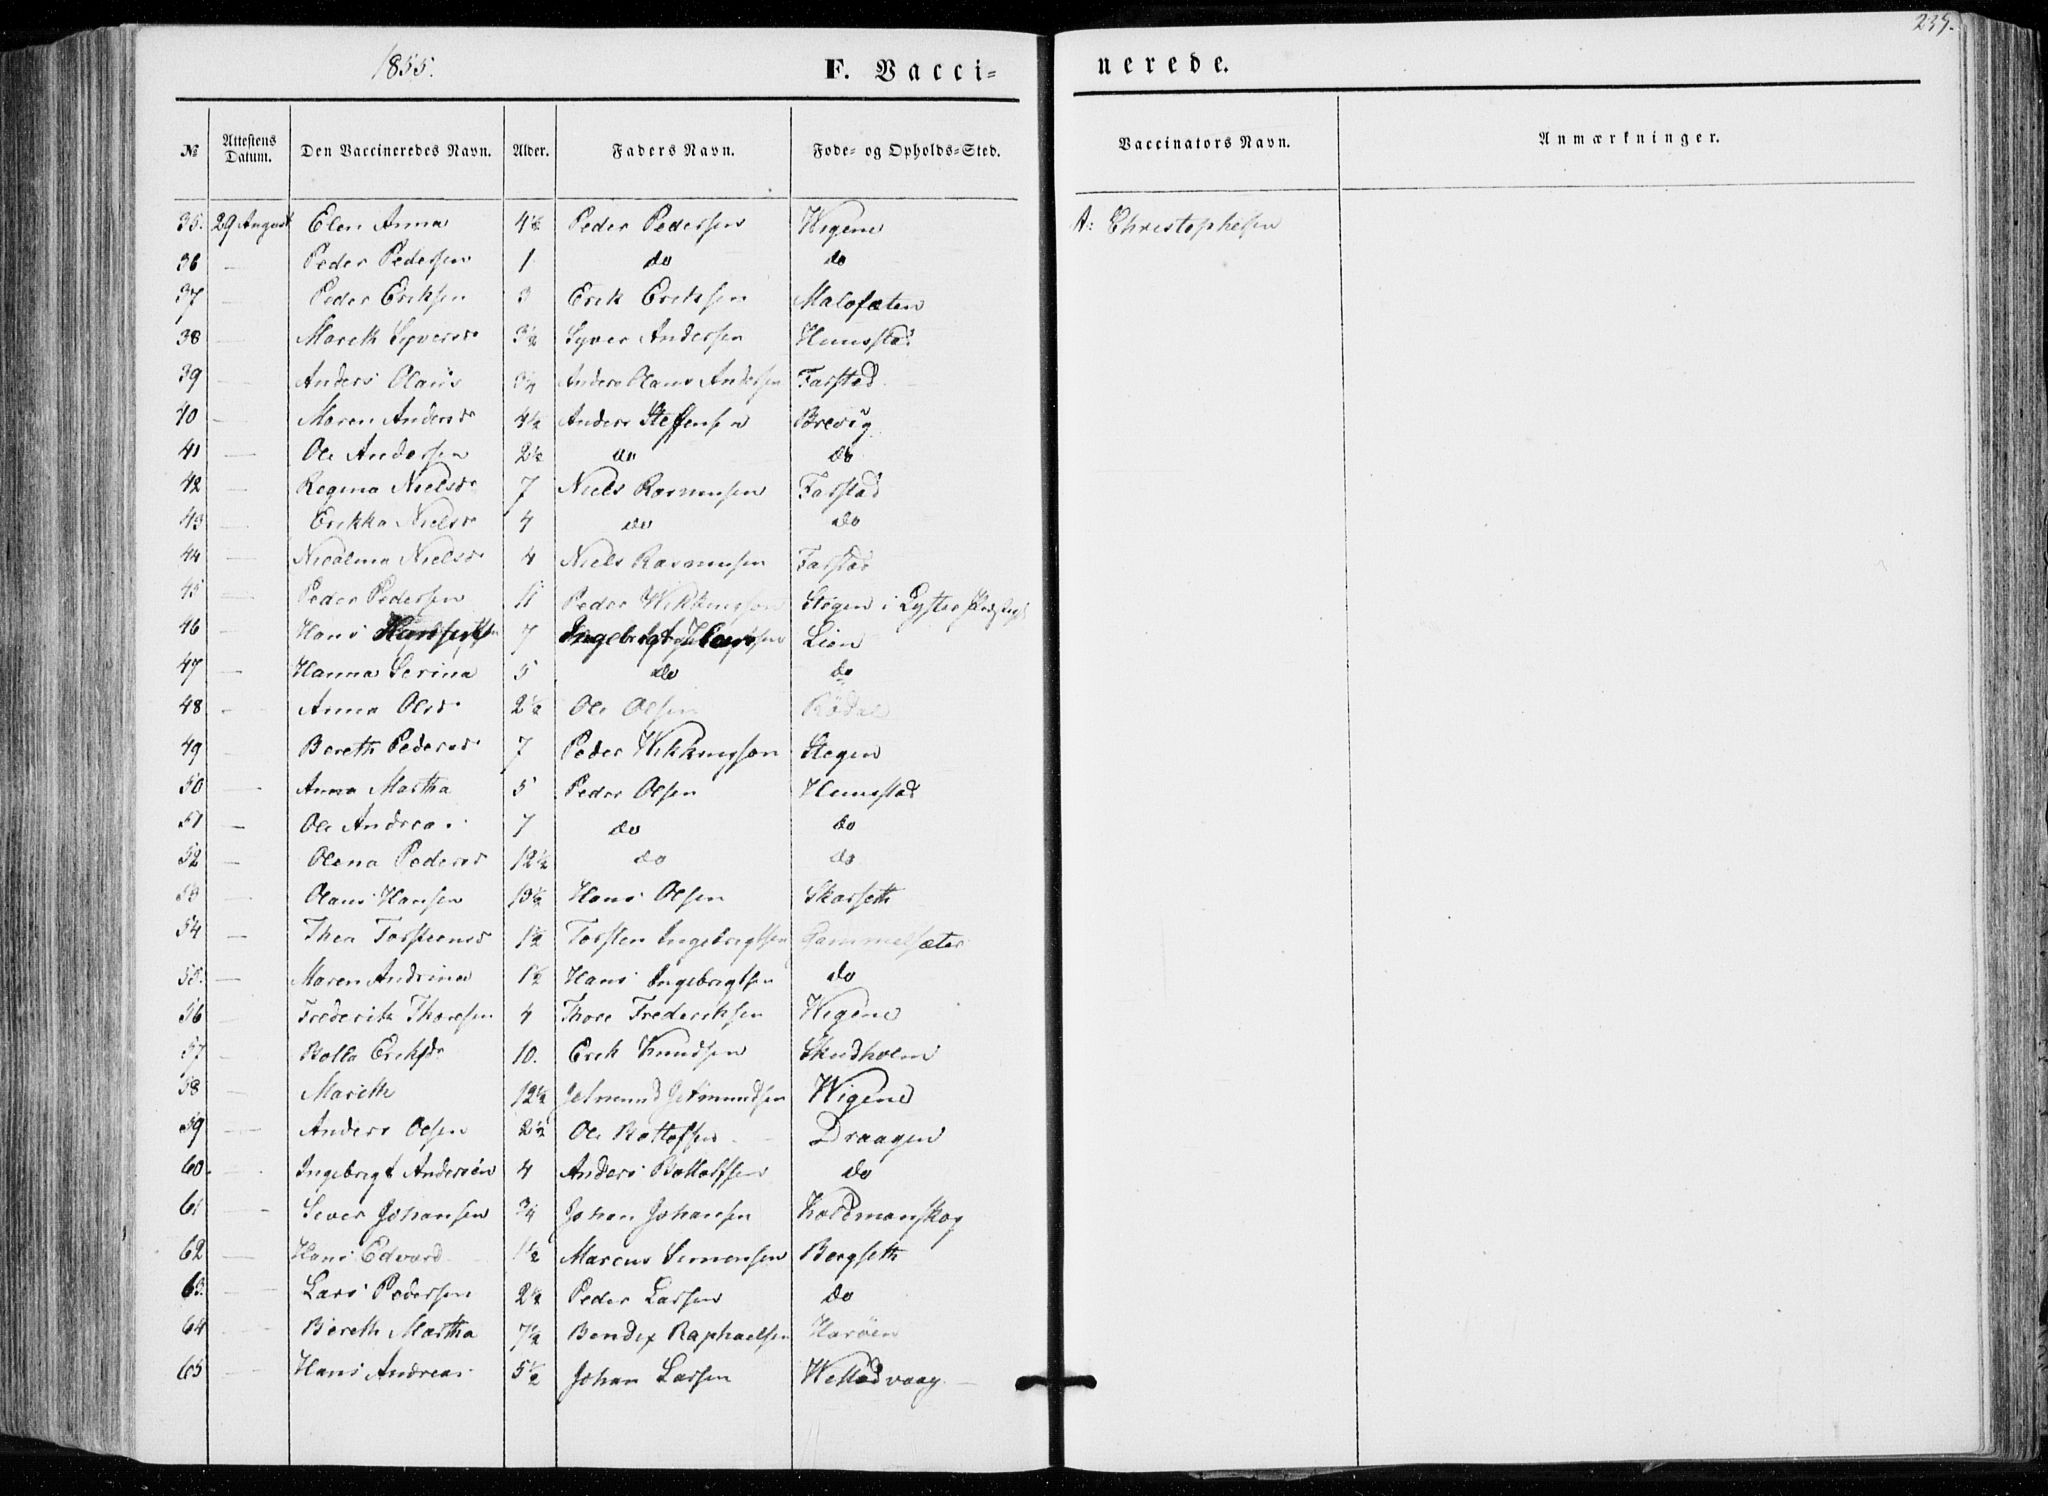 1855.
F. Vacci-
nerede.
№ Attestens Datum. Den Vaccineredes Navn. Alder. Faders Navn. Føde- og Opholds-Sted. Vaccinators Navn. Anmærkninger.
35. 29 August Elen Anna 4½ Peder Pedersen Wigene A: Christophesen
36 — Peder Pedersen 1 do do
37 — Peder Eriksen 3 Erik Eriksen Malefæten
38 — Mareth Syversd 3½ Syver Andersen Hunsstad
39 — Anders Olaus 3¼ Anders Olaus Andersen Farstad
40 — Maren Andersd 4½ Anders Steffensen Brevig
41 — Ole Andersen 2½ do do
42 — Regina Nielsd 7 Niels Rasmussen Farstad
43 — Erikka Nielsd 4 do do
44 — Nicolina Nielsd 4 Niels Rasmussen Farstad
45 — Peder Pedersen 11 Peder Wikkingson Stegen i Lyster
46 — Hans 7 Ingebrigt Lien
47 — Hanna Serina 5 do do
48 — Anna Olsd 2½ Ole Olsen Rødal
49 — Bereth Pedersd 7 Peder Wikkingson Stegen
50 — Anna Martha 5 Peder Olsen Hunsstad
51 — Ole Andreas 7 do do
52 — Olena Pedersd 12½ do do
53 — Olaus Hansen 13½ Hans Olsen Skarseth
54 — Thea Torsteensd 1½ Torsten Ingebrigtsen Gammelsæter
55. — Maren Andrina 1½ Hans Ingebrigtsen do
56 — Frederik Thoresen 4 Thore Frederiksen Wigene
57 — Bolla Eriksdr 10. Erik Knudsen Skudholm
58 — Mareth 12½ Jetmund Jetmundsen Wigene
59 — Anders Olsen 2½ Ole Bottolfsen Draagen
60. — Ingebrigt Andersen 4 Anders Bottolfsen do
61 — Siver Johansen ¾ Johan Johansen Holdmanskog
62 — Hans Edvard 1½ Marcus Simensen Bergseth
63. — Lars Pedersen 2½ Peder Larsen do
64 — Bereth Martha 7½ Bendix Raphaelsen Harøen
65 — Hans Andreas 5½ Johan Larsen Westadvaag